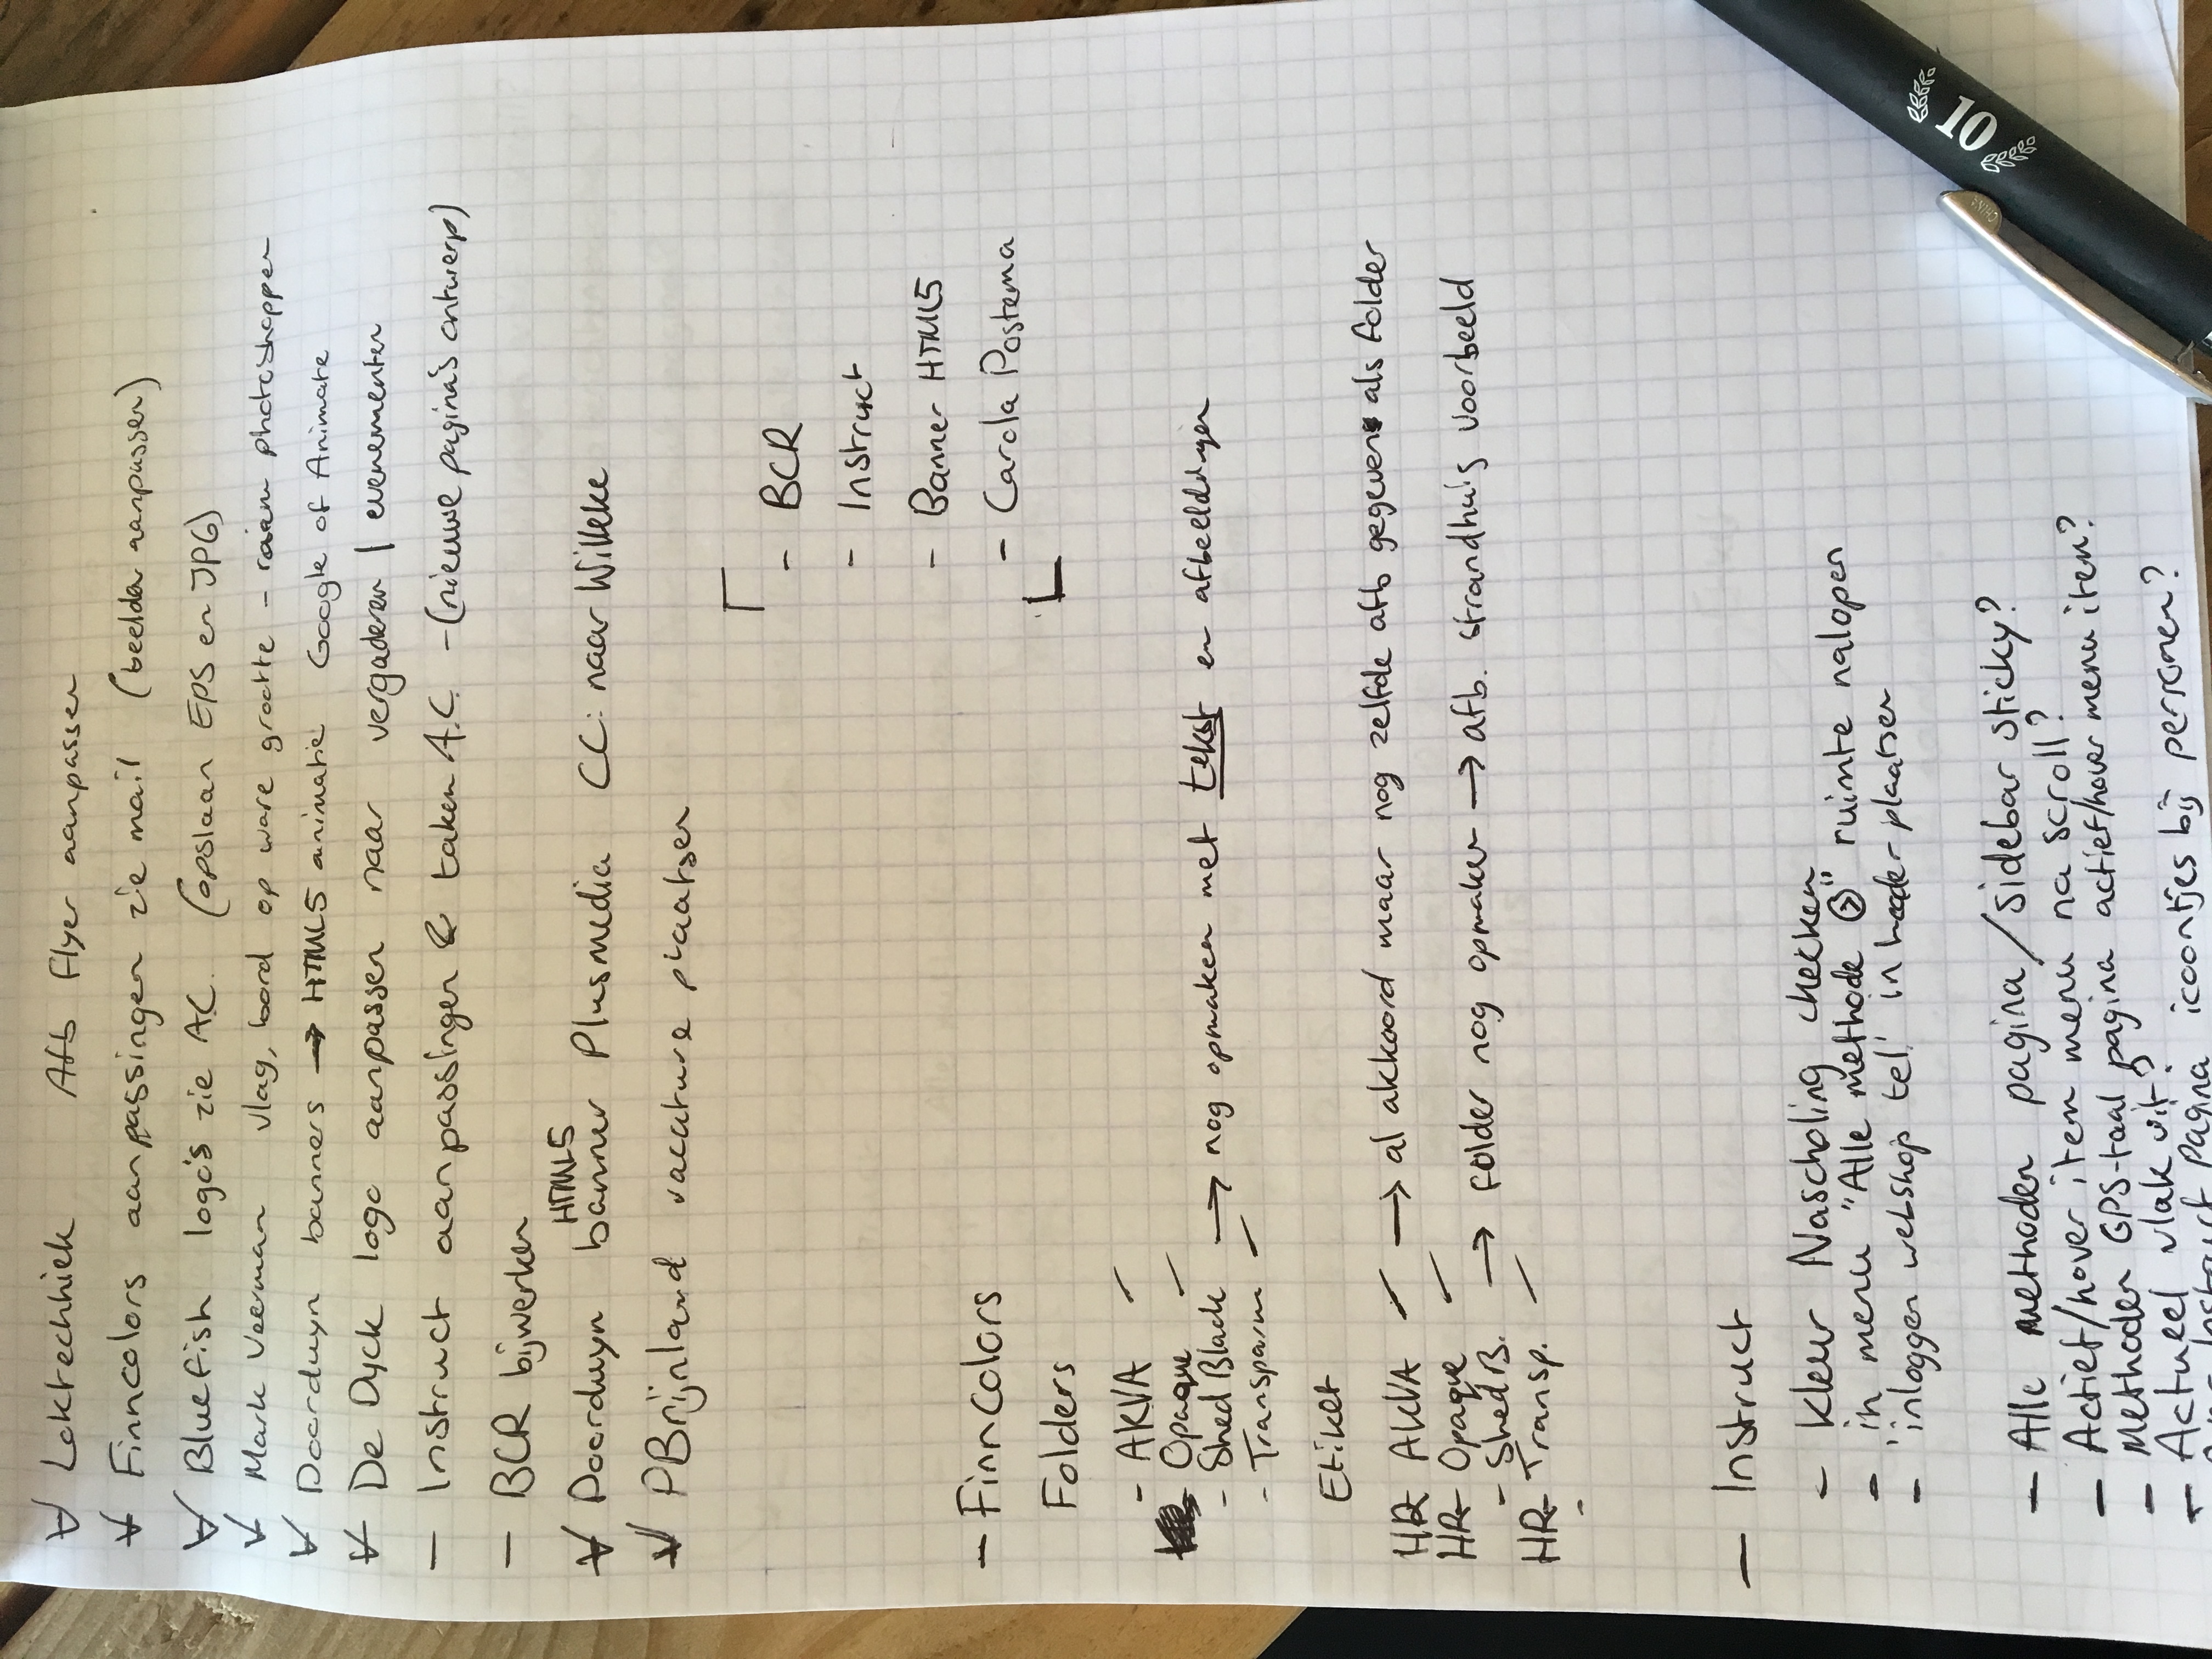 V Laktechniek Afb Flyer aanpassen
V Finncolors aanpassingen zie mail (beelden aanpassen)
V Bluefish logo's zie A.C. (opslaan EPS en JPG)
V Mark Veerman vlag, bord op ware grootte - raam photoshoppen
V Doorduyn banners → HTML5 animatie Google of Animate
V De Dyck logo aanpassen naar vergaderen | evenementen
- Instruct aanpassingen & taken A.C. - (nieuwe pagina's ontwerp)
- BCR bijwerken
V Doorduyn HTML5 banner Plusmedia CC: naar Willeke
V PBrijnland vacature plaatsen
- BCR
- Instruct
- Banner HTML5
- Carola Postema
- FinnColors
Folders
- AKVA
Opaque
- Shed Black → nog opmaken met tekst en afbeeldingen
- Transparn
Etiket
HR AKVA → al akkoord maar nog zelfde afb gegevens als folder
HR Opaque
- Shed B. → folder nog opmaken → afb. strandhuis voorbeeld
HR Transp.
- Instruct
- Kleur Nascholing checken
- in menu "Alle methode" ruimte nalopen
- inloggen webshop tel. in header plaatsen
- Alle methoden pagina / sidebar sticky?
- Actief/hover item menu na scroll?
- Methoden GPS-taal pagina actief/hover menu item?
- Actueel vlak uit?
Instruct pagina icoontjes bij personen?
10
CHINA